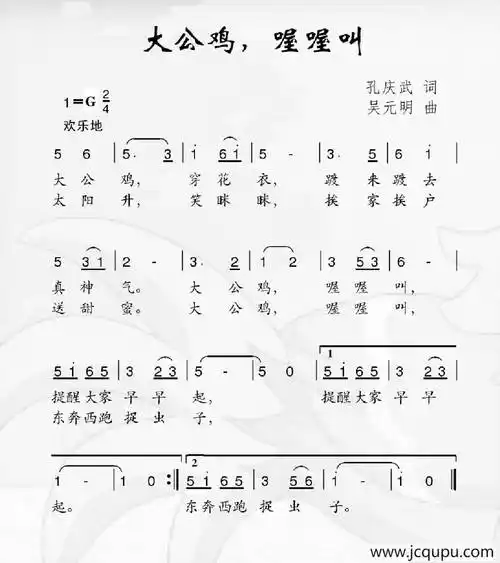 大公鸡，喔喔叫
1=G 2/4
孔庆武 词
吴元明 曲
欢乐地
5 6 | 5. 3 | i 6i | 5 - | 3. 5 | 6 i |
大 公 鸡， 穿 花 衣， 踱 来 踱 去
太 阳 升， 笑 眯 眯， 挨 家 挨 户
5 31 | 2 - | 3. 2 | 1 2 | 3 53 | 6 - |
真 神 气。 大 公 鸡， 喔 喔 叫，
送 甜 蜜。 大 公 鸡， 喔 喔 叫，
5i 65 | 3 23 | 5 - | 5 0 | 1 5i 65 | 3 23 |
提醒大家 早 早 起， 提醒大家 早 早
东奔西跑 捉 虫 子，
1 - | 1 0 :| 2 5i 65 | 3 23 | 1 - | 1 0 ‖
起。 东奔西跑 捉 虫 子。
www.jcqupu.com